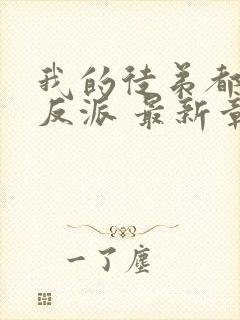 我的徒弟都
反派 最新章
一了塵